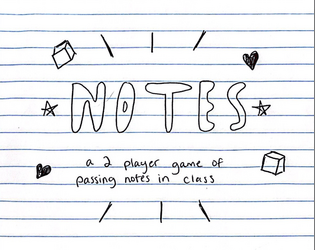 NOTES
a 2 player game of
passing notes in class